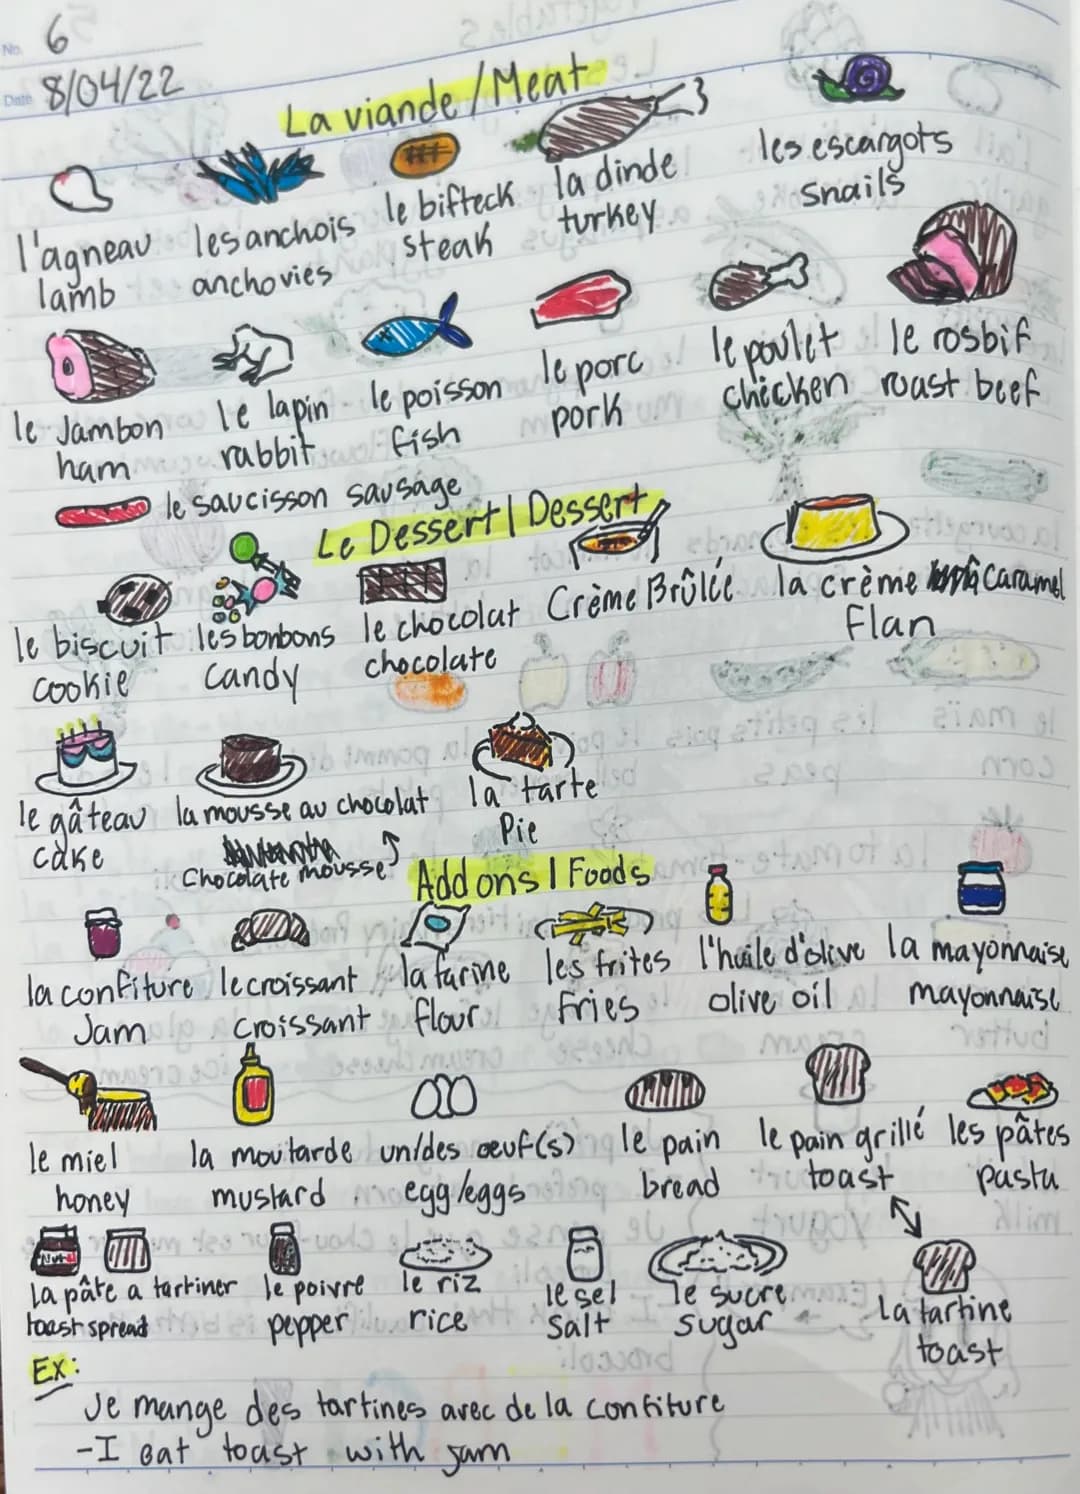 No. 6
Date 8/04/22
La viande/Meat
les escargots
snails
la dinde
turkey
le bifteck
steak
les anchois
anchovies
l'agneau
lamb
le Jambon
ham
le lapin
rabbit
le poisson
fish
le porc
pork
le poulet
chicken
le rosbif
roast beef
le saucisson sausage
Le Dessert | Dessert
le biscuit
cookie
les bonbons
Candy
le chocolat
chocolate
Crème Brûlée
la crème caramel
Flan
le gâteau
cake
la mousse au chocolat
Chocolate mousse
la tarte
Pie
Add ons | Foods
la confiture
Jam
le croissant
croissant
la farine
flour
les frites
Fries
l'huile d'olive
olive oil
la mayonnaise
mayonnaise
le miel
honey
la moutarde
mustard
un/des œuf(s)
egg/eggs
le pain
bread
le pain grillé
toast
les pâtes
pasta
la pâte a tartiner
toast spread
le poivre
pepper
le riz
rice
le sel
Salt
le sucre
sugar
La tartine
toast
Ex:
Je mange des tartines avec de la confiture
-I eat toast with jam